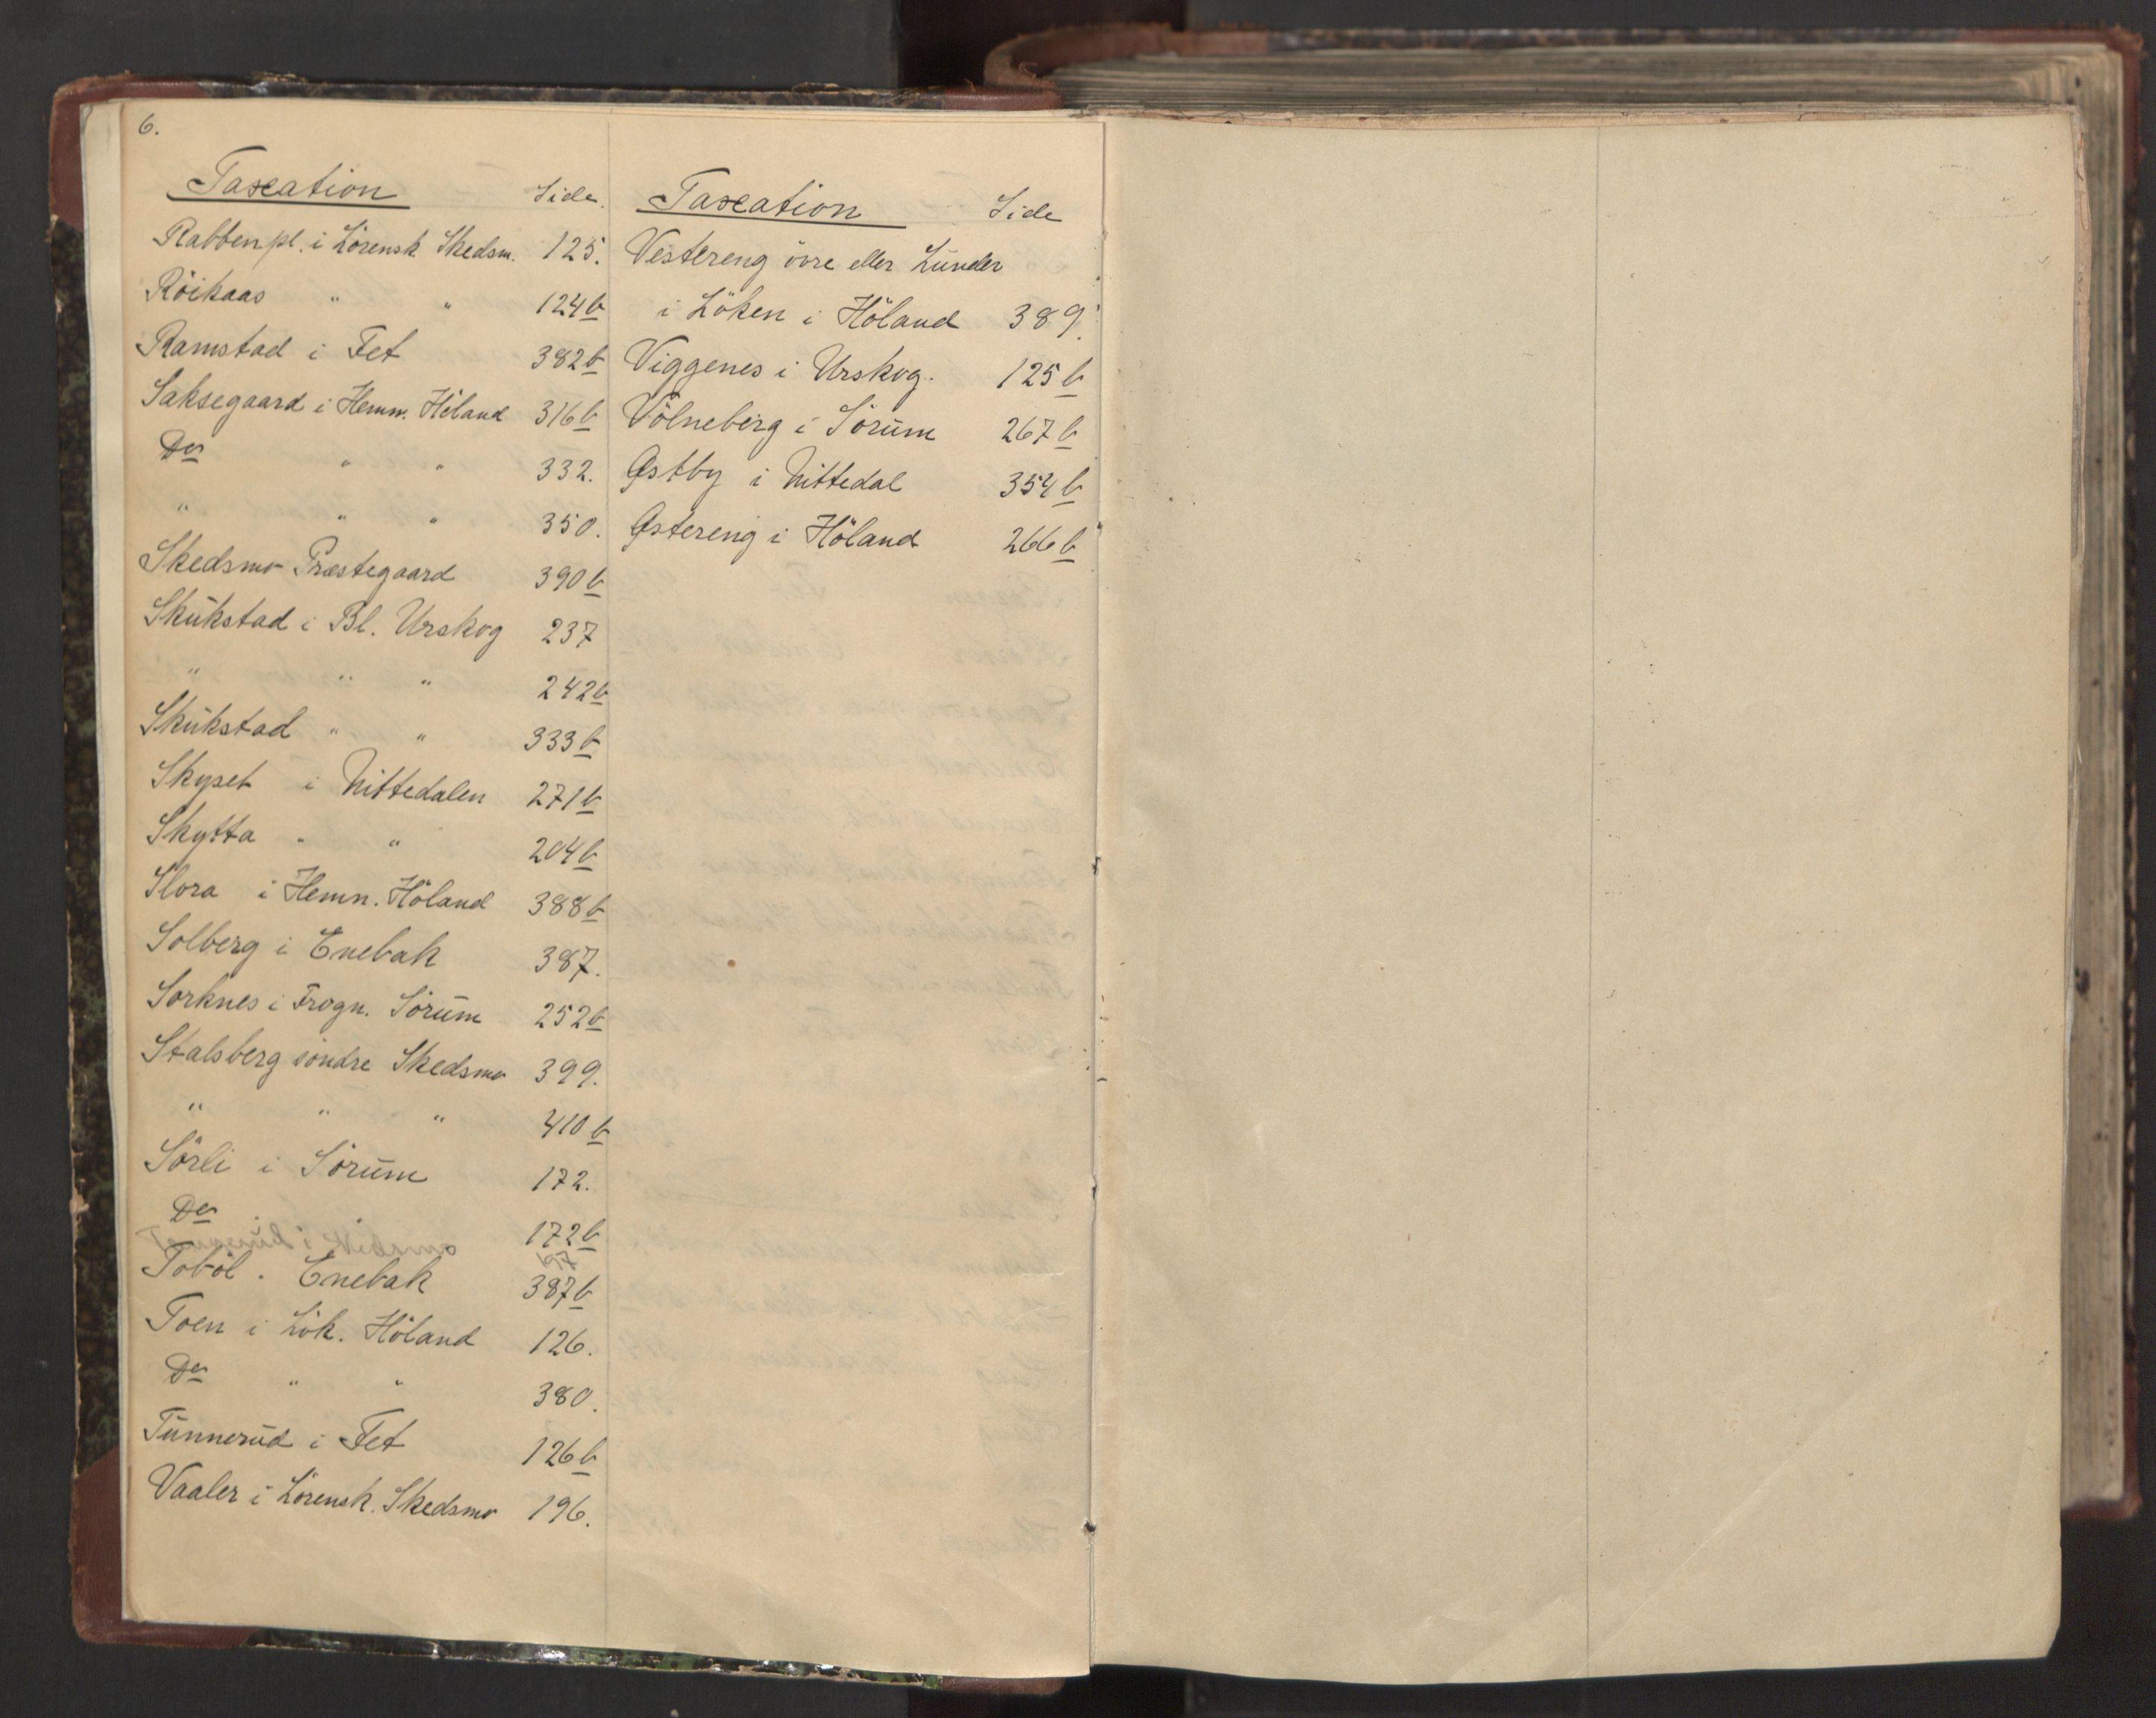 6.
Taxation Side.
Rabben pl. i Lörensk. Skedsm. 125.
Röikaas " " 124 b
Ramstad i Fet 382 b
Saksegaard i Hemn. Höland 316 b
Do " " 332.
" " " 350.
Skedsmo Præstegaard 390 b
Skukstad i Bl. Urskog 237
" " " 242 b
Skukstad " " 333 b
Skyset i Nittedalen 271 b
Skytta " " 204 b
Slora i Hemn. Höland 388 b
Solberg i Enebak 387.
Sorknes i Frogn. Sörum 252 b
Stalsberg söndre Skedsmo 399.
" " " 410 b
Sörli i Sörum 172.
Do " 172 b
i Skedsmo 197
Toböl . Enebak 387 b
Toen i Lök. Höland 126.
Do " " 380.
Tunnerud i Fet 126 b
Vaaler i Lörensk. Skedsmo 196.
Taxation Side
Vestereng övre eller Lunder
i Löken i Höland 389.
Viggenes i Urskog. 125 b
Völneberg i Sörum 267 b
Østby i Nittedal 354 b
Østereng i Höland 266 b